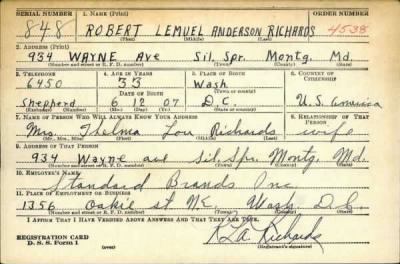 SERIAL NUMBER 1. NAME (Print) ORDER NUMBER
848 ROBERT LEMUEL Anderson RICHARDS 4538
(First) (Middle) (Last)
2. ADDRESS (Print)
934 WAYNE Ave Sil. Spr. Montg. Md.
(Number and street or R. F. D. number) (Town) (County) (State)
3. TELEPHONE 4. AGE IN YEARS 5. PLACE OF BIRTH 6. COUNTRY OF CITIZENSHIP
6450 33 Wash
DATE OF BIRTH (Town or county)
Shepherd 6 12 07 D.C. U.S. America
(Exchange) (Number) (Mo.) (Day) (Yr.) (State or country)
7. NAME OF PERSON WHO WILL ALWAYS KNOW YOUR ADDRESS 8. RELATIONSHIP OF THAT PERSON
Mrs. Thelma Lou Richards wife
(Mr., Mrs., Miss) (First) (Middle) (Last)
9. ADDRESS OF THAT PERSON
934 Wayne ave Sil. Spr. Montg. Md.
(Number and street or R. F. D. number) (Town) (County) (State)
10. EMPLOYER'S NAME
Standard Brands Inc.
11. PLACE OF EMPLOYMENT OR BUSINESS
1356 Oakie st NE. Wash. D.C.
(Number and street or R. F. D. number) (Town) (County) (State)
I AFFIRM THAT I HAVE VERIFIED ABOVE ANSWERS AND THAT THEY ARE TRUE.
REGISTRATION CARD
D. S. S. Form 1 (over) R L A Richards
(Registrant's signature)